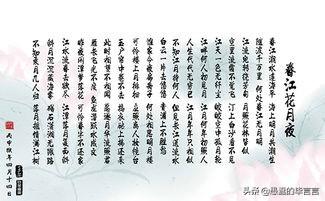 春江花月夜
春江潮水连海平 海上明月共潮生
滟滟随波千万里 何处春江无月明
江流宛转绕芳甸 月照花林皆似霰
空里流霜不觉飞 汀上白沙看不见
江天一色无纤尘 皎皎空中孤月轮
江畔何人初见月 江月何年初照人
人生代代无穷已 江月年年只相似
不知江月待何人 但见长江送流水
白云一片去悠悠 青枫浦上不胜愁
谁家今夜扁舟子 何处相思明月楼
可怜楼上月徘徊 应照离人妆镜台
玉户帘中卷不去 捣衣砧上拂还来
此时相望不相闻 愿逐月华流照君
鸿雁长飞光不度 鱼龙潜跃水成文
昨夜闲潭梦落花 可怜春半不还家
江水流春去欲尽 江潭落月复西斜
斜月沉沉藏海雾 碣石潇湘无限路
不知乘月几人归 落月摇情满江树
丙申 四月十四日